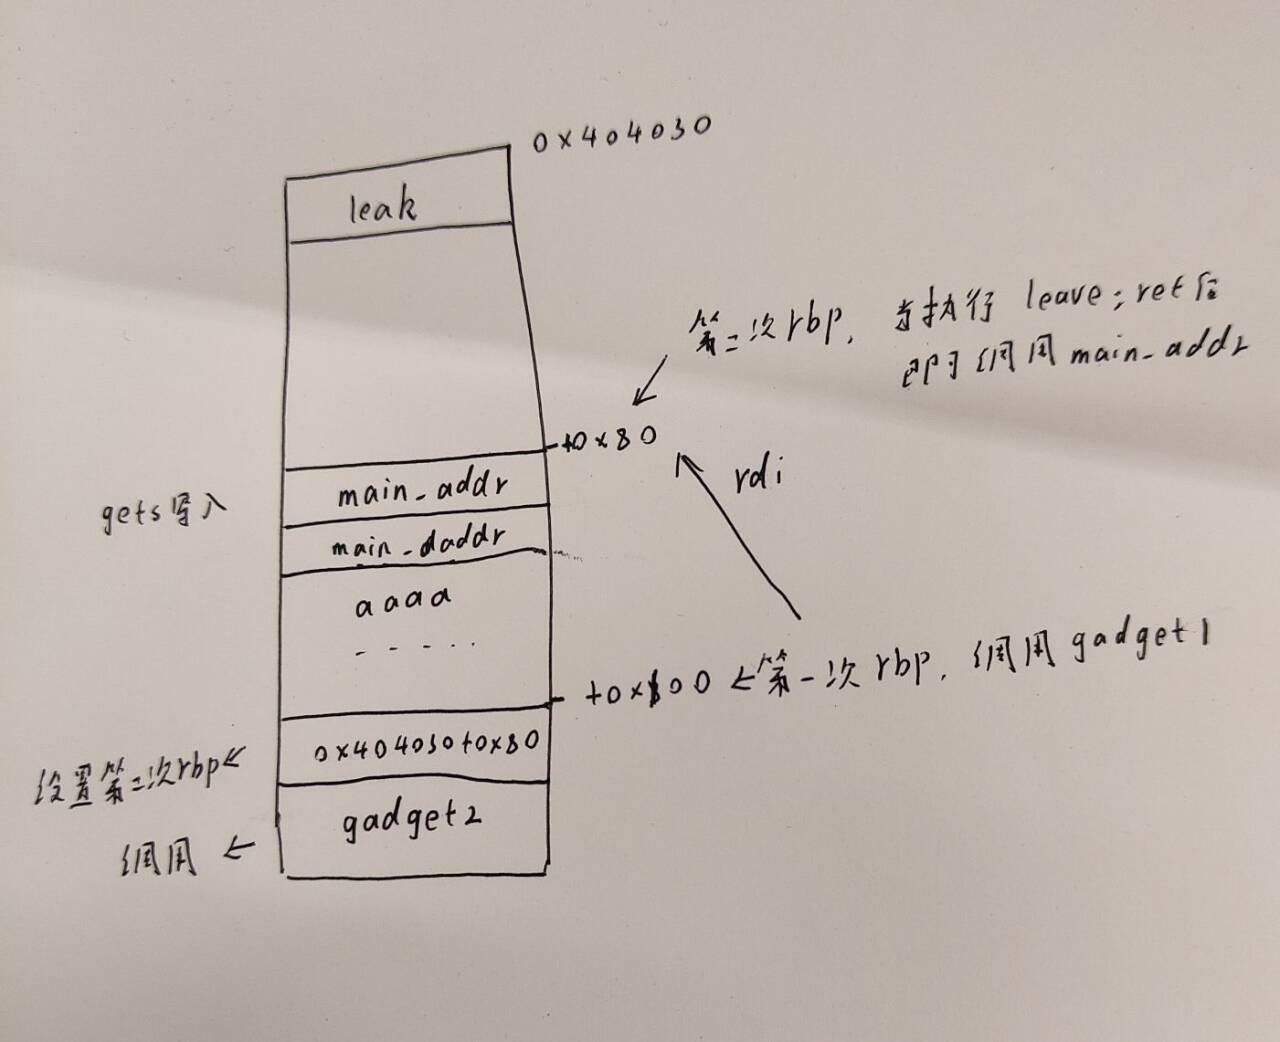 0x404030
leak
第二次rbp, 当执行 leave;ret后
即可调用main_addr
+0x80
rdi
main_addr
gets写入
main_daddr
aaaa
- - - - -
+0x100 ← 第一次rbp, 调用gadget1
0x404030+0x80
设置第二次rbp←
gadget2
调用 ←